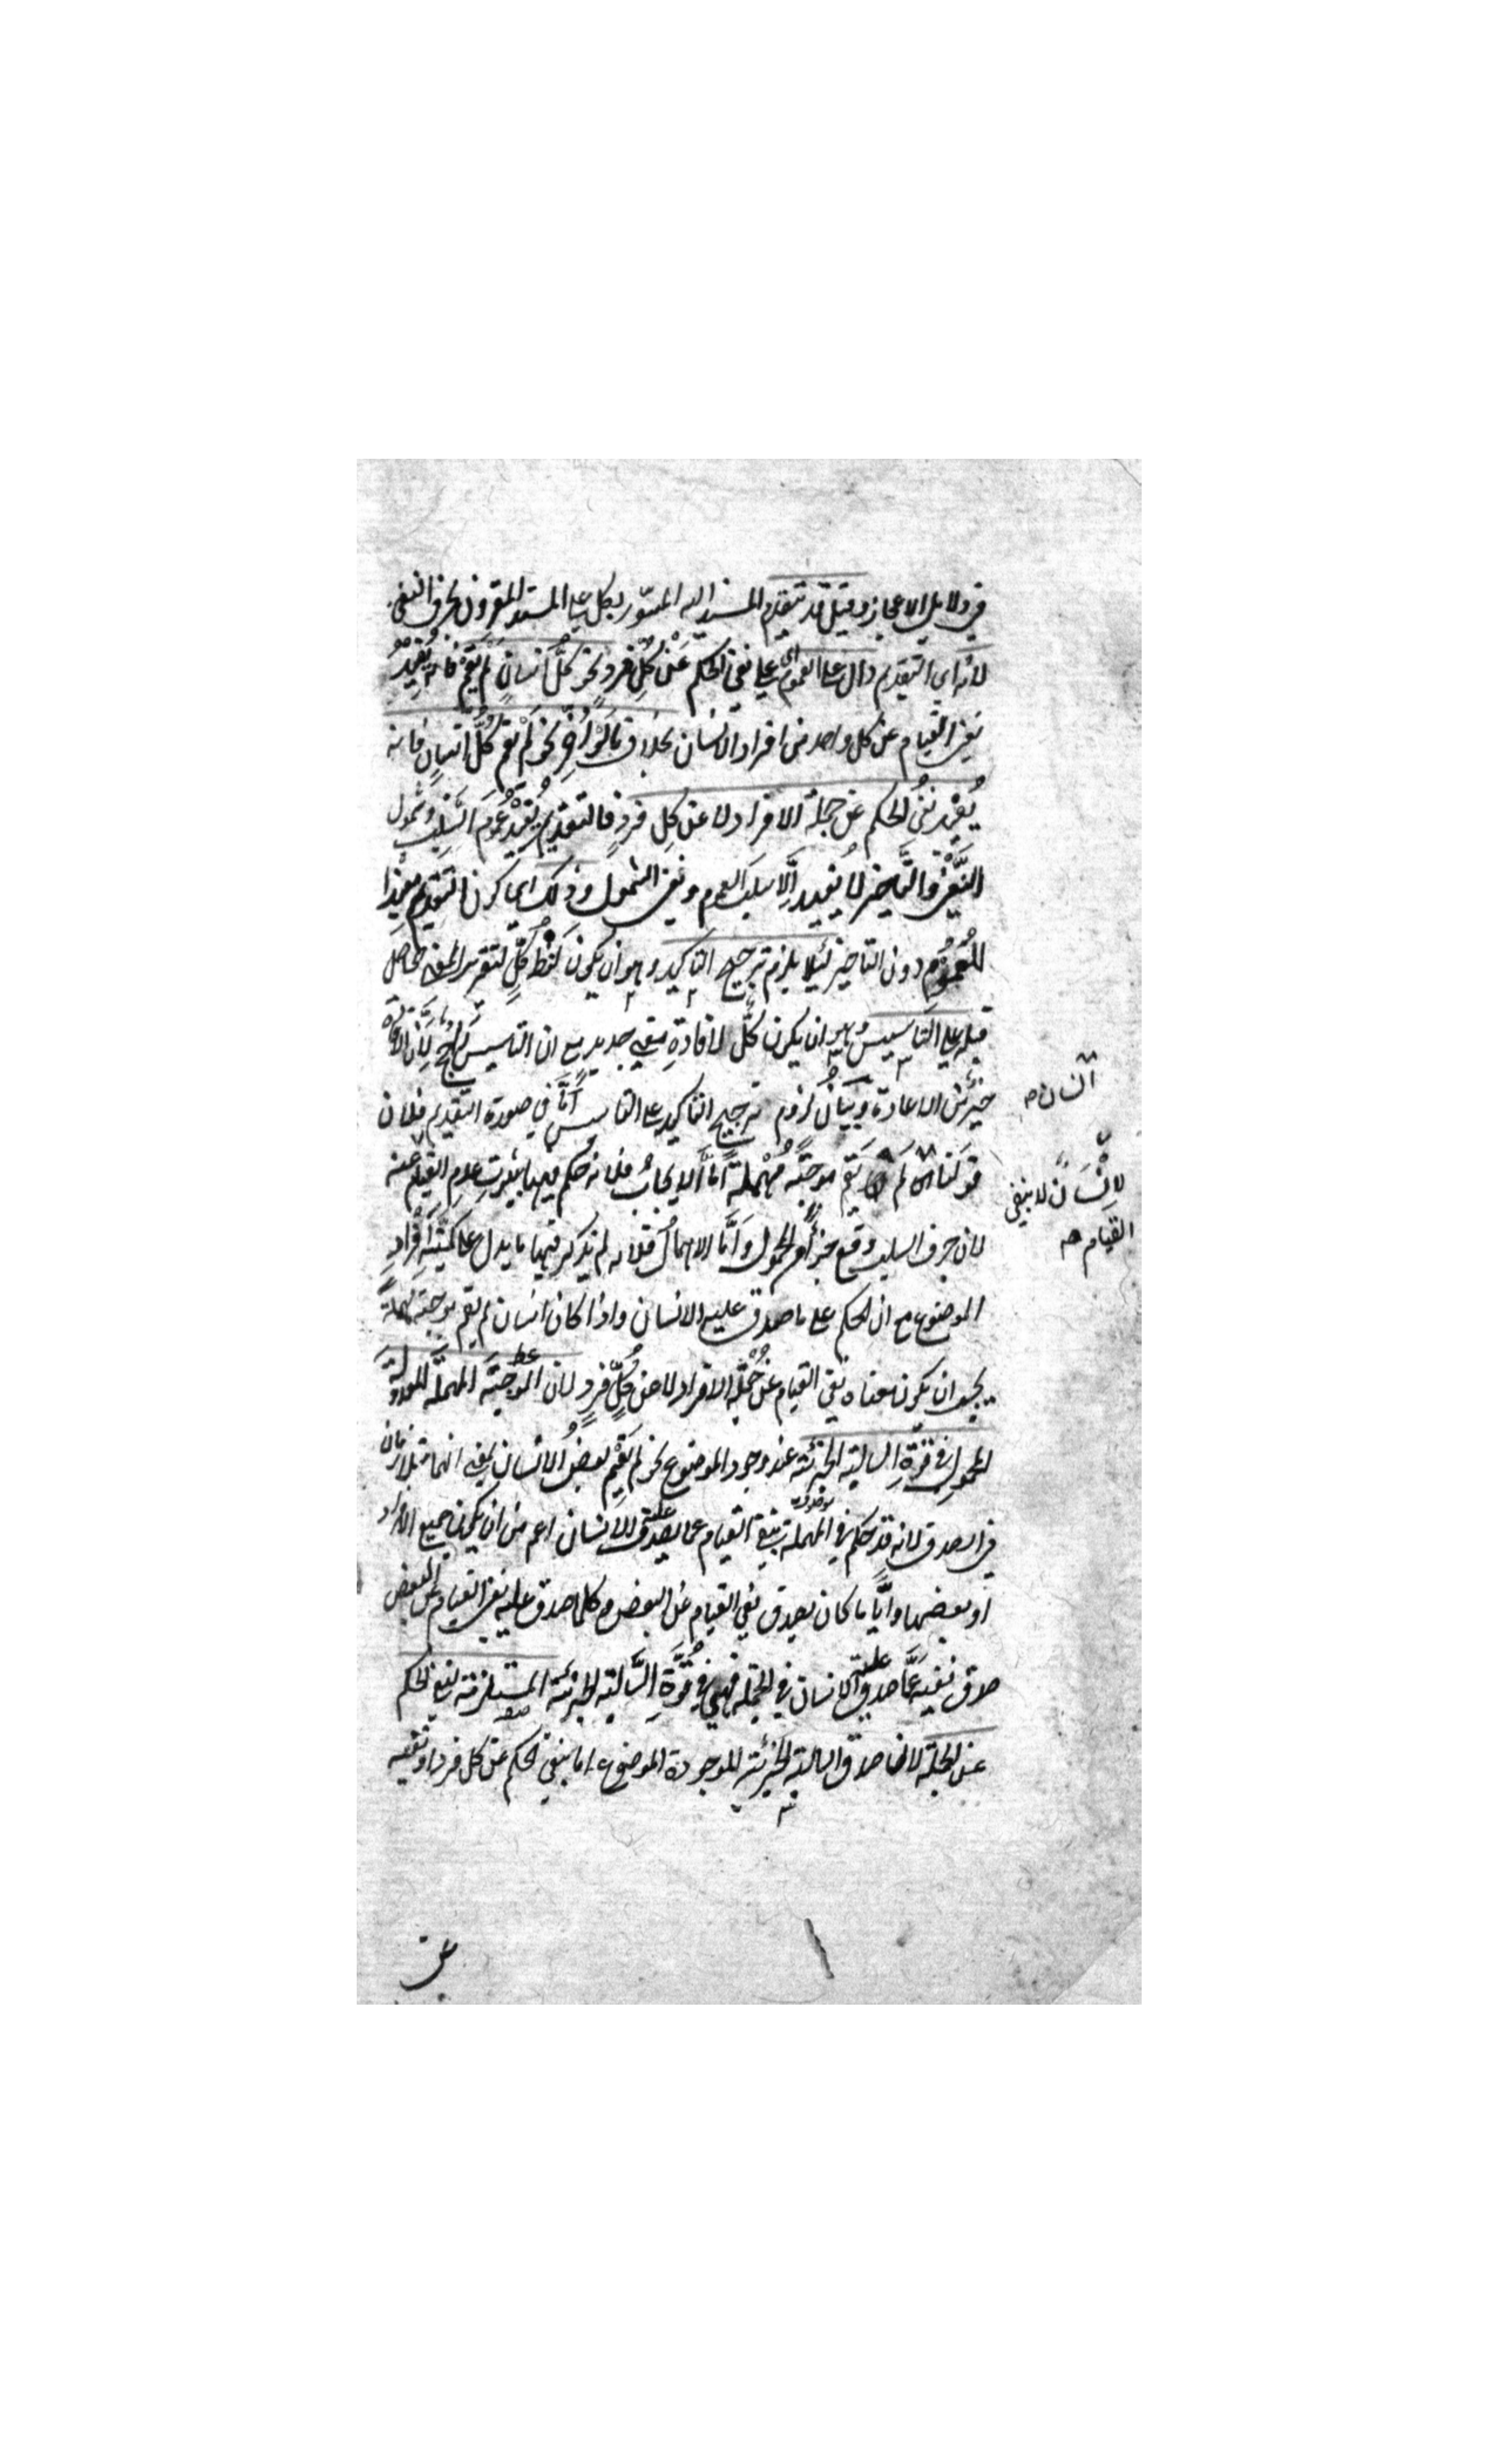 في دلايل الاعجاز وقيل قد يتقدم المسند اليه المسوّر بكل على المسند المقرون بحرف النفي
لانه اي التقديم دال على العموم اي على نفي الحكم عَنْ كُلِّ فردٍ نحو كلُّ انسانٍ لم يقم فانه يُفيدُ
نفي القيام عن كل واحد من افراد الانسان بخلاف ما لَوْ اُخِّرَ نحو لَمْ يقم كُلُّ انسانٍ فانه
يُفيد نفيُ الحكم عن جملة الافراد لا عن كل فردٍ فالتقديم يُفيدُ عُمومَ السَّلبِ وشمول
النَّفْيِ والتَّاخير لا يُفيد اِلّا سلبَ العموم ونفي الشمول وذلك اي كون التقديم مفيدا
للعُمُومِ دون التاخير لئلا يلزم ترجيح التاكيد وهو ان يكون لَفْظُ كُلٍّ لتقرير المعنى الحاصل
قبله على التاسيس وهو ان يكون كُلّ لافادةِ معنى جديدٍ مع ان التاسيسَ راجحٌ لِاَنَّ الافادة
خَيرٌ من الاعادة وبَيَانُ لُزوم ترجيح التاكيد على التاسيس اَمَّا في صورة التقديم فلان
قولَنا انسان لَم يَقُم مُوجَبَةٌ مُهْمَلَةٌ اَمَّا الايجابُ فلانه حُكم فيها بثبوتِ عدمِ القيام عنه
انسان صح
لانسان لا بنفي
القيام صح
لان حرف السلب وقع جزأً من المحمول وَاَمَّا الاهمالُ فلانه لم يُذكر فيها ما يدل على كميّةِ اَفْرادِ
الموضوع مع ان الحكم على ما صدق عليه الانسان واذا كان انسان لم يقم موجبة مهملةً
يجب ان يكون معناه نفي القيام عَنْ جُمْلَةِ الافراد لا عن كُلِّ فردٍ لان المُوجَبَةَ المهملَةَ المعدولةَ
المحمولِ في قُوَّةِ السالبةِ الجزئيةِ عند وجود الموضوع نحو لم يَقُمْ بعضُ الانسان بمعنى انهما متلازمان
في الصدق لانه قد حكم في المهملة بنفي القيام عما يصدق عليه الانسان اعم من ان يكون جميع الافراد
او بعضها وايًّا ما كان يصدق نفي القيام عن البعض وكلما صدق عليه نفي القيام عن البعض
صدق نفيه عَمَّا صدق عليه الانسان في الجملة فهي في قُوَّةِ السَّالبةِ الجزئيّة المستلزمة لنفي الحكم
عن الجملة لان صدق السالبة الجزئية الموجودة الموضوع اما بنفي الحكم عن كل فرد او نفيه
عن